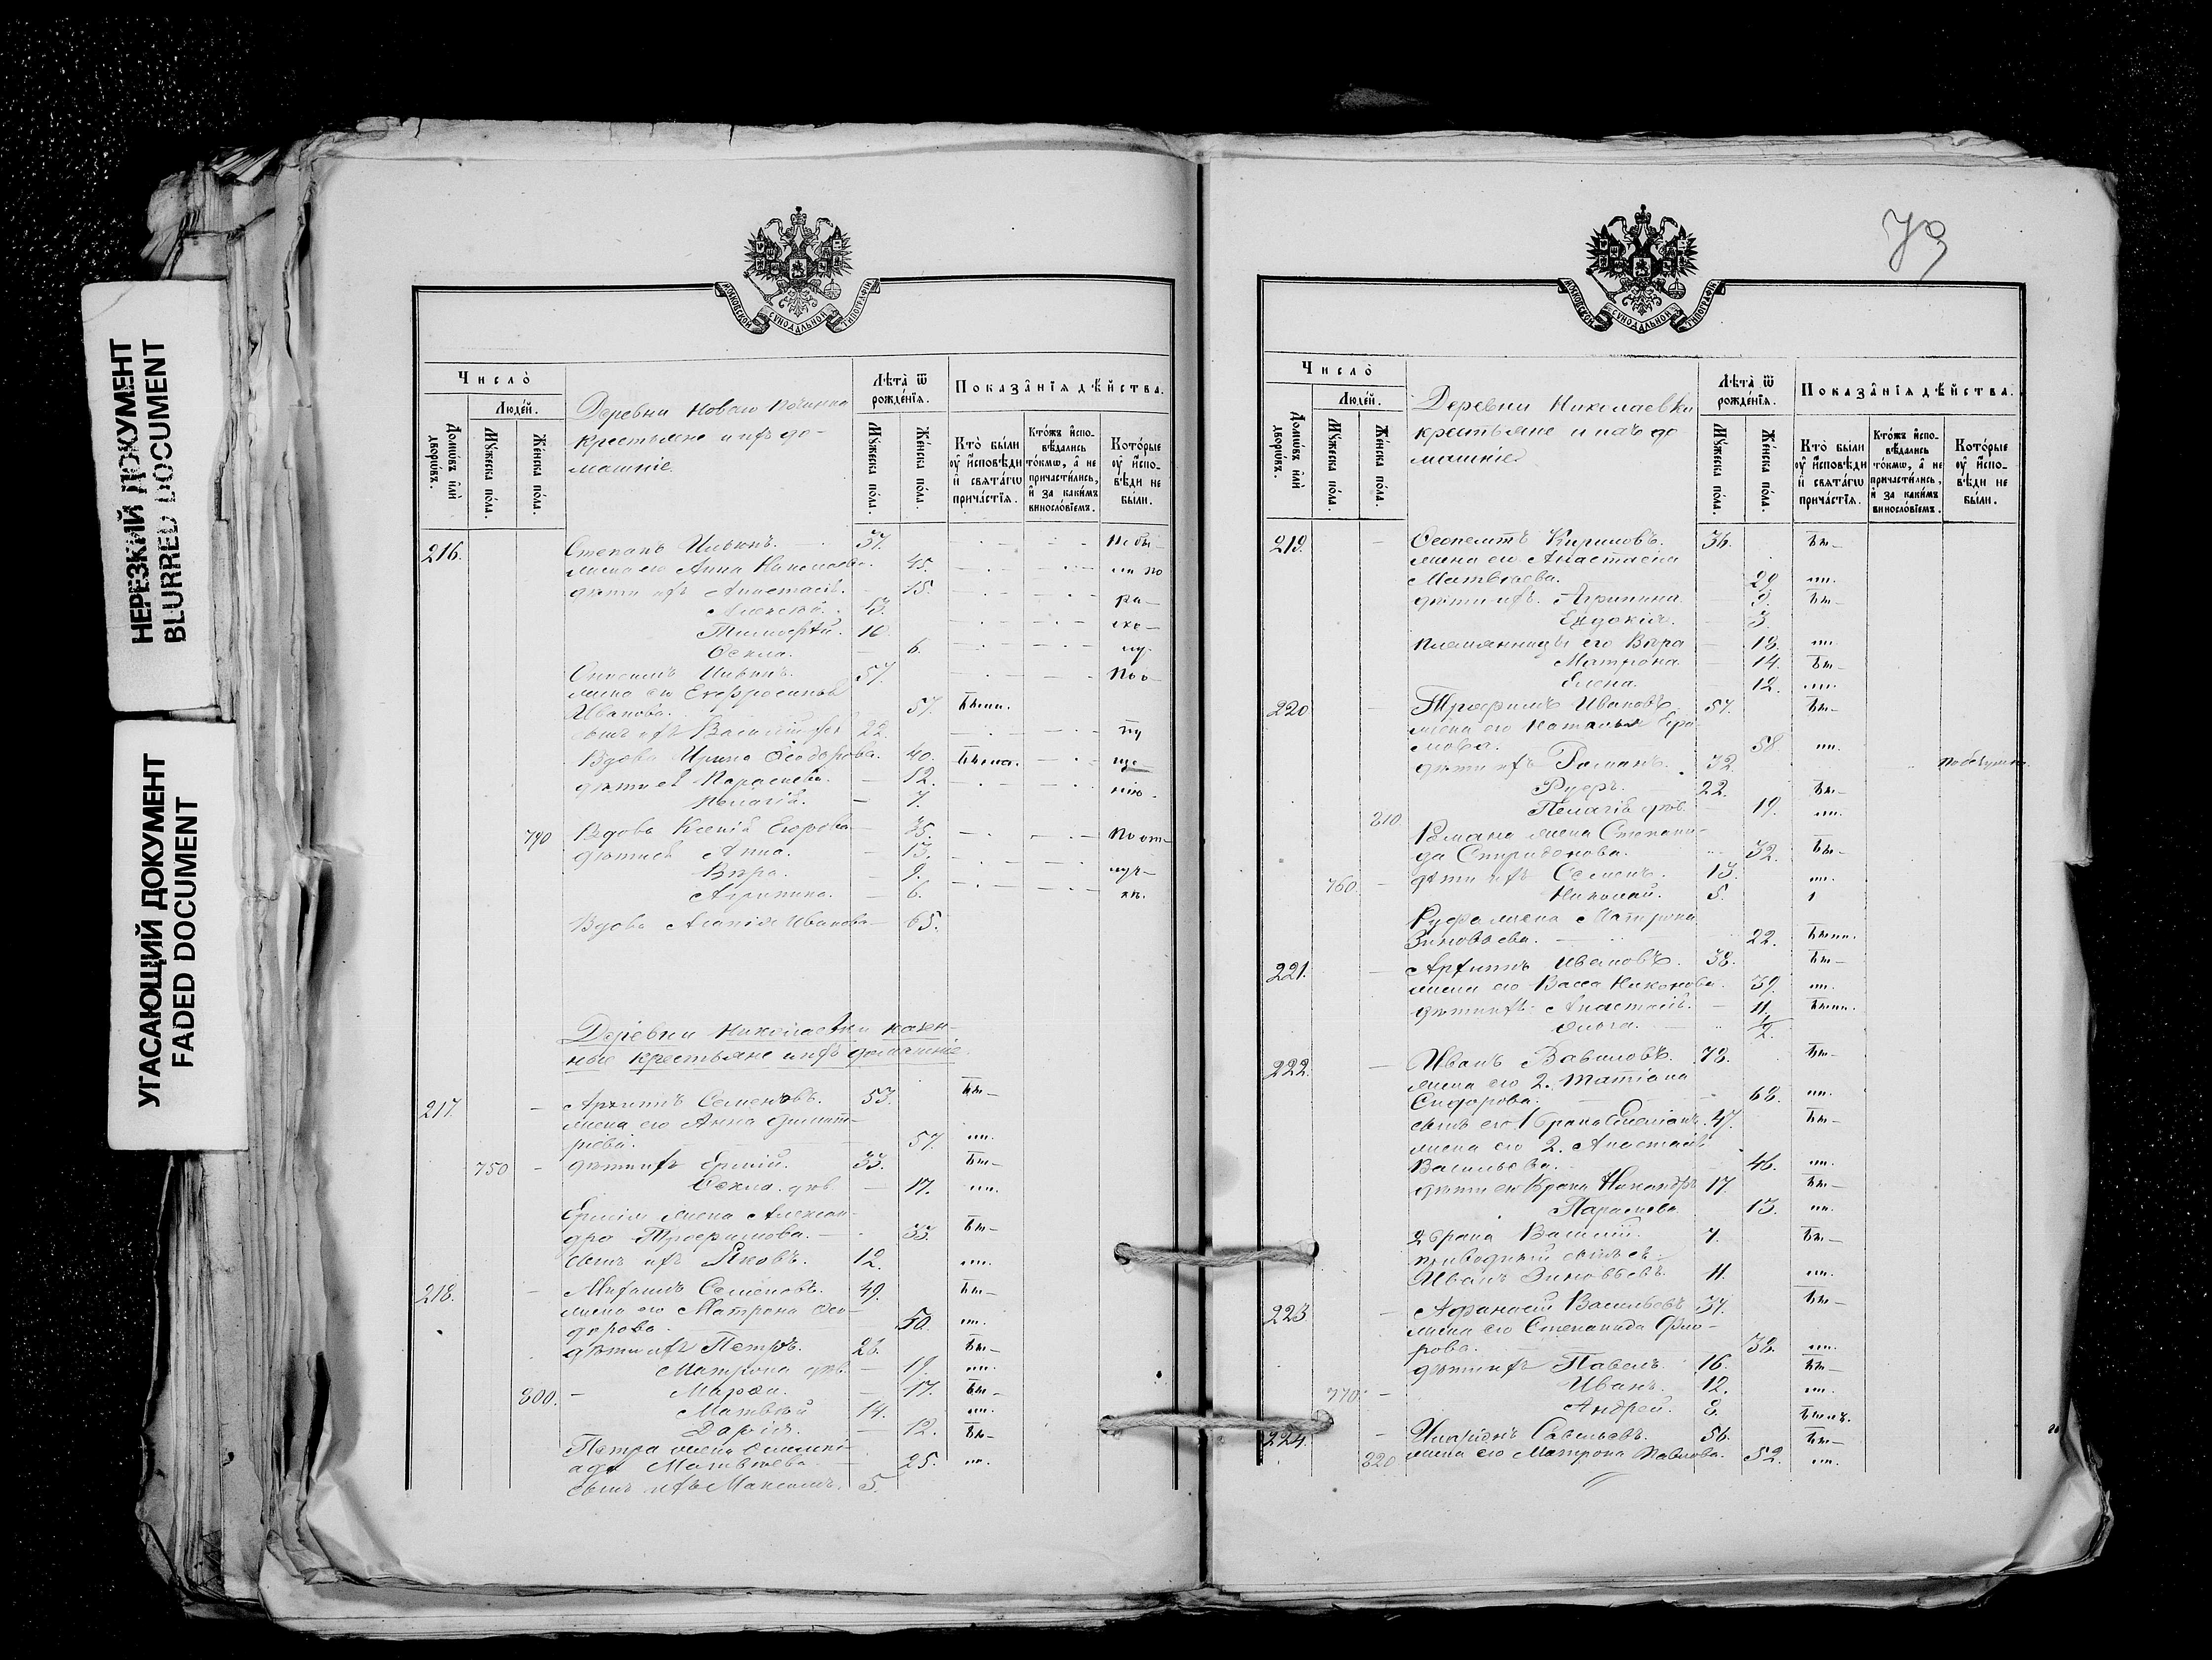 НЕРЕЗКИЙ ДОКУМЕНТ
BLURRED DOCUMENT
УГАСАЮЩИЙ ДОКУМЕНТ
FADED DOCUMENT
МОСКОВСКОЙ СѴНОДАЛЬНОЙ ТИПОГРАФІИ
Число̀
Людей.
Домѡвъ и҆лѝ дворѡвъ.
Мꙋжеска пола.
Женска пола.
Деревни Новаго Починка
крестьяне и ихъ до-
машніе.
Лѣта̀ ѿ рожде́нїѧ.
Мꙋжеска пола.
Женска пола.
Показа̑нїѧ дѣ́йства.
Кто̀ бы́ли ᲂу҆ и҆сповѣди и҆ свята́гѡ прича́стїѧ.
Кто́жъ и҆споповѣдались то́кмѡ, а҆ не причасти́лись, и҆ за каки́мъ винословїемъ.
Кото́рые ᲂу҆ и҆сповѣди не бы́ли.
216. Степанъ Ильинъ. 37. Не бы-
жена его Анна Николаева. 45. ли по
дѣти ихъ Анастасія. 15. ра-
Алексѣй. 13. ско-
Тимофей. 10. лу.
Ѳекла. 6.
Онисимъ Ильинъ. 57. По о-
жена его Евфросинія
Иванова. 57. Были.
сынъ ихъ Василий 22. лу
Вдова Ирина Ѳеодорова. 40. Была.
дѣти ея Параскева. 12.
Пелагія. 7.
790 Вдова Ксенія Егорова 35. По от-
дѣти ея Анна. 13.
Вѣра. 9. луч-
Агрипина. 6. кѣ.
Вдова Иванова 65.
Деревни Николаевки казен-
ные крестьяне и ихъ домашніе.
217. Архипъ Семеновъ. 53. Бы-
жена его Анна Димит-
ріева. 57. ли.
750 дѣти ихъ Ермій. 33. Бы-
Ѳекла дѣв. 17. ли.
Ермія жена Алексан-
дра Трофимова. 33. Бы-
сынъ ихъ Яковъ. 12. ли.
218. Михаилъ Семеновъ. 49. Бы-
жена его Матрона Ѳео-
дорова 50. ли.
дѣти ихъ Петръ. 26. Бы-
Матрона дѣв. 19. ли.
800. Марѳа. 17. Бы-
Матвѣй 14. ли.
Дарія. 12. Бы-
Петра жена Олимпі-
ада Матвѣева 25. ли.
сынъ ихъ Максимъ. 5.
79
МОСКОВСКОЙ СѴНОДАЛЬНОЙ ТИПОГРАФІИ
Число̀
Людей.
Домѡвъ и҆лѝ дворѡвъ.
Мꙋжеска пола.
Женска пола.
Деревни Николаевки
крестьяне и ихъ до
машніе
Лѣта̀ ѿ рожде́нїѧ.
Мꙋжеска пола.
Женска пола.
Показа̑нїѧ дѣ́йства.
Кто̀ бы́ли ᲂу҆ и҆сповѣди и҆ свята́гѡ прича́стїѧ.
Кто́жъ и҆споповѣдались то́кмѡ, а҆ не причасти́лись, и҆ за каки́мъ винословїемъ.
Кото́рые ᲂу҆ и҆сповѣди не бы́ли.
219. Ѳеопемптъ Кириловъ. 36. Бы-
жена его Анастасія
Матвѣева. 29. ли.
дѣти ихъ Агрипина. 9. Бы-
Евдокія. 3.
племянницы его Вѣра 18. ли.
Матрона. 14. Бы-
Елена. 12. ли.
220 Трофимъ Ивановъ 57. Бы-
жена его Наталья Ера-
мова. 58. ли.
дѣти ихъ Романъ. 32.
Руфъ. 22. Бы-
810 Пелагія дѣв. 19. ли.
Романа жена Степани-
да Спиридонова. 32. Бы-
760. дѣти ихъ Семенъ. 13. ли.
Николай. 5.
Руфа жена Матрона
Зиновьева. 22. Были.
221. Архипъ Ивановъ. 38. Бы-
жена его Васса Никонова. 39. ли.
дѣти ихъ Анастасія. 11. Были.
Ольга. ½
222. Иванъ Вавиловъ. 78. Бы-
жена его 2. Татіана
Сидорова. 68. ли.
сынъ его 1 брака 47. Бы-
жена его 2. Анастасія
Васильева. 46. ли.
дѣти его 1 брака Никандръ 17. Бы-
Параскева 13. ли.
2 брака Василій. 7. Бы-
приводный сынъ ея
Иванъ Зиновьевъ. 11. ли.
223. Афанасій Васильевъ 37. Бы-
жена его Степанида Фло-
рова. 38. ли.
дѣти ихъ Павелъ. 16. Бы-
770. Иванъ. 12. ли.
Андрей. 8. Былъ.
224. Иларіонъ Савельевъ. 56. Бы-
820 жена его Матрона Павлова. 52. ли.